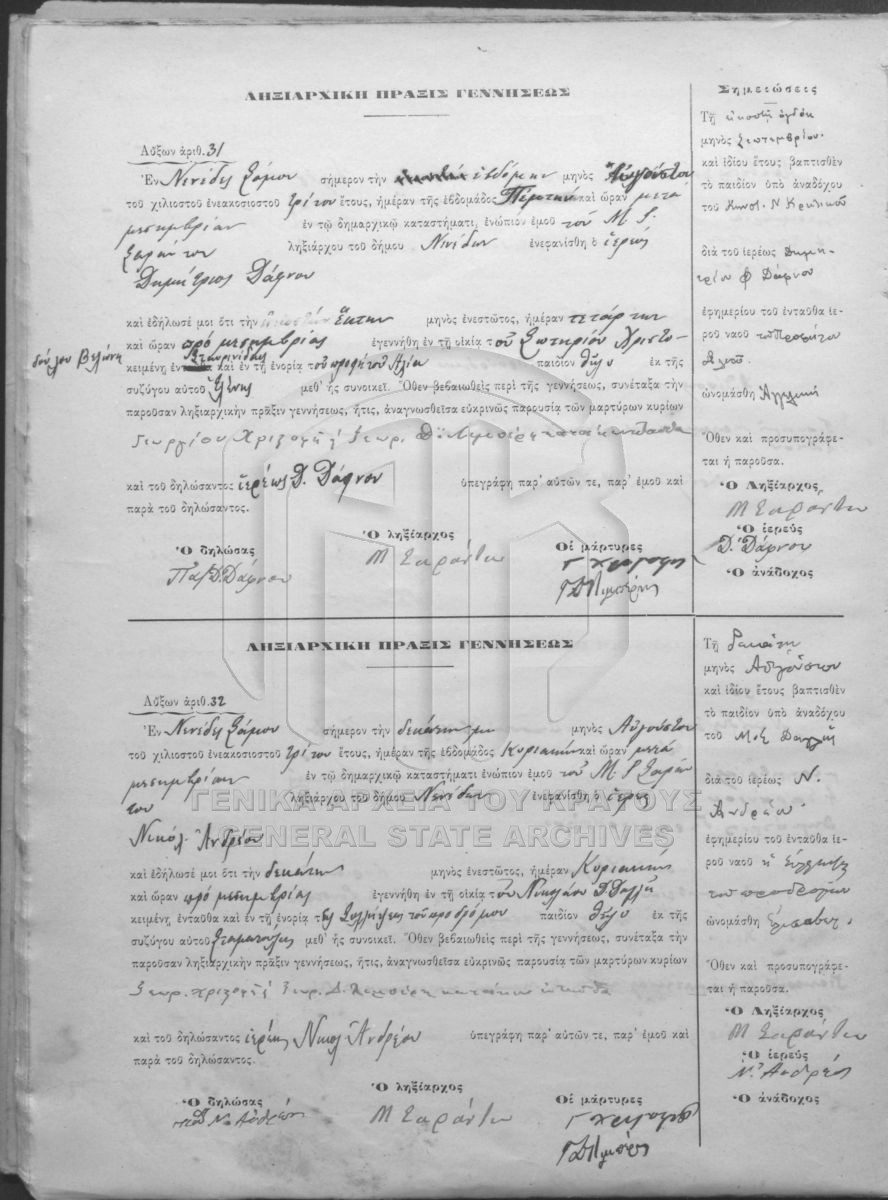 ΛΗΞΙΑΡΧΙΚΗ ΠΡΑΞΙΣ ΓΕΝΝΗΣΕΩΣ
Αὔξων ἀριθ. 31
Ἐν Νενέδες Σάμου σήμερον τὴν ἑβδόμην μηνὸς Αὐγούστου
τοῦ χιλιοστοῦ ἐνεακοσιοστοῦ τρίτου ἔτους, ἡμέραν τῆς ἑβδομάδος Πέμπτην καὶ ὥραν μετὰ
μεσημβρίαν ἐν τῷ δημαρχικῷ καταστήματι, ἐνώπιον ἐμοῦ τοῦ Μ. Γ.
Σαράντου ληξιάρχου τοῦ δήμου Νενέδων ἐνεφανίσθη ὁ ἱερεὺς
Δημήτριος Δάφνου
καὶ ἐδήλωσέ μοι ὅτι τὴν ἕκτην μηνὸς ἐνεστῶτος, ἡμέραν τετάρτην
καὶ ὥραν πρὸ μεσημβρίας ἐγεννήθη ἐν τῇ οἰκίᾳ τοῦ Σωτηρίου Χριστο-
δούλου Βελώνη
κειμένῃ ἐνταῦθα καὶ ἐν τῇ ἐνορίᾳ τοῦ προφήτου Ἠλία παιδίον θῆλυ ἐκ τῆς
συζύγου αὐτοῦ Ἑλένης μεθ᾽ ἧς συνοικεῖ. Ὅθεν βεβαιωθεὶς περὶ τῆς γεννήσεως, συνέταξα τὴν
παροῦσαν ληξιαρχικὴν πρᾶξιν γεννήσεως, ἥτις, ἀναγνωσθεῖσα εὐκρινῶς παρουσίᾳ τῶν μαρτύρων κυρίων
Γεωργίου Γεωρ. Δ.
καὶ τοῦ δηλώσαντος ἱερέως Δ. Δάφνου ὑπεγράφη παρ᾽ αὐτῶν τε, παρ᾽ ἐμοῦ καὶ
παρὰ τοῦ δηλώσαντος.
Ὁ δηλώσας Ὁ ληξίαρχος Οἱ μάρτυρες
Παπ Δ. Δάφνου Μ Σαράντου
Σημειώσεις
Τῇ εἰκοστῇ ὀγδόῃ
μηνὸς Σεπτεμβρίου
καὶ ἰδίου ἔτους βαπτισθὲν
τὸ παιδίον ὑπὸ ἀναδόχου
τοῦ Κωνστ. Ν
διὰ τοῦ ἱερέως Δημη-
τρίου Δάφνου
ἐφημερίου τοῦ ἐνταῦθα ἱε-
ροῦ ναοῦ τοῦ Προφήτου
Ἠλιοῦ
ὠνομάσθη Ἀγγελικὴ
Ὅθεν καὶ προσυπογράφε-
ται ἡ παροῦσα.
Ὁ Ληξίαρχος
Μ Σαράντου
Ὁ ἱερεύς
Δ. Δάφνου
Ὁ ἀνάδοχος
ΛΗΞΙΑΡΧΙΚΗ ΠΡΑΞΙΣ ΓΕΝΝΗΣΕΩΣ
Αὔξων ἀριθ. 32
Ἐν Νενέδες Σάμου σήμερον τὴν δεκάτην μηνὸς Αὐγούστου
τοῦ χιλιοστοῦ ἐνεακοσιοστοῦ τρίτου ἔτους, ἡμέραν τῆς ἑβδομάδος Κυριακὴν καὶ ὥραν μετὰ
μεσημβρίαν ἐν τῷ δημαρχικῷ καταστήματι ἐνώπιον ἐμοῦ τοῦ Μ Γ Σαράν
του ληξιάρχου τοῦ δήμου Νενέδων ἐνεφανίσθη ὁ ἱερεὺς
Νικόλ. Ἀνδρέου
ΓΕΝΙΚΑ ΑΡΧΕΙΑ ΤΟΥ ΚΡΑΤΟΥΣ
GENERAL STATE ARCHIVES
καὶ ἐδήλωσέ μοι ὅτι τὴν δεκάτην μηνὸς ἐνεστῶτος, ἡμέραν Κυριακὴν
καὶ ὥραν πρὸ μεσημβρίας ἐγεννήθη ἐν τῇ οἰκίᾳ τοῦ Νικολάου Δ.
κειμένῃ ἐνταῦθα καὶ ἐν τῇ ἐνορίᾳ τῆς Συλλήψεως τοῦ προδρόμου παιδίον θῆλυ ἐκ τῆς
συζύγου αὐτοῦ Σταματούλας μεθ᾽ ἧς συνοικεῖ. Ὅθεν βεβαιωθεὶς περὶ τῆς γεννήσεως, συνέταξα τὴν
παροῦσαν ληξιαρχικὴν πρᾶξιν γεννήσεως, ἥτις, ἀναγνωσθεῖσα εὐκρινῶς παρουσίᾳ τῶν μαρτύρων κυρίων
Γεωρ. Γεωρ. Δ.
καὶ τοῦ δηλώσαντος ἱερέως Νικολ. Ἀνδρέου ὑπεγράφη παρ᾽ αὐτῶν τε, παρ᾽ ἐμοῦ καὶ
παρὰ τοῦ δηλώσαντος.
Ὁ δηλώσας Ὁ ληξίαρχος Οἱ μάρτυρες
Μ Σαράντου
Τῇ δεκάτῃ
μηνὸς Αὐγούστου
καὶ ἰδίου ἔτους βαπτισθὲν
τὸ παιδίον ὑπὸ ἀναδόχου
τοῦ
διὰ τοῦ ἱερέως Ν.
Ἀνδρέου
ἐφημερίου τοῦ ἐνταῦθα ἱε-
ροῦ ναοῦ ἡ Σύλληψις
τοῦ προδρόμου
ὠνομάσθη Ἐλισάβετ.
Ὅθεν καὶ προσυπογράφε-
ται ἡ παροῦσα.
Ὁ Ληξίαρχος
Μ Σαράντου
Ὁ ἱερεύς
Ν. Ἀνδρέου
Ὁ ἀνάδοχος